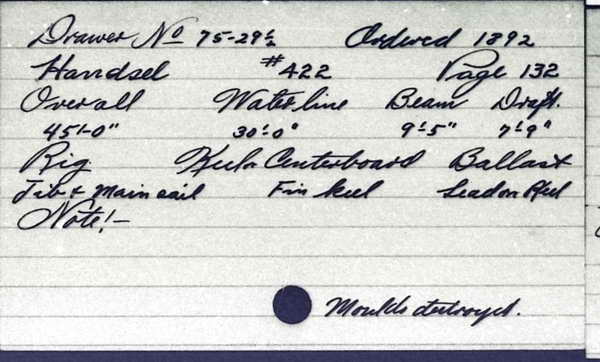 Drawer No 75-29½ Ordered 1892
Handsel #422 Page 132
Overall Waterline Beam Draft.
45'-0" 30'-0" 9'-5" 7'-9"
Rig Keel or Centerboard Ballast
Jib & Mainsail Fin keel Lead on Keel
Note!-
Moulds destroyed.